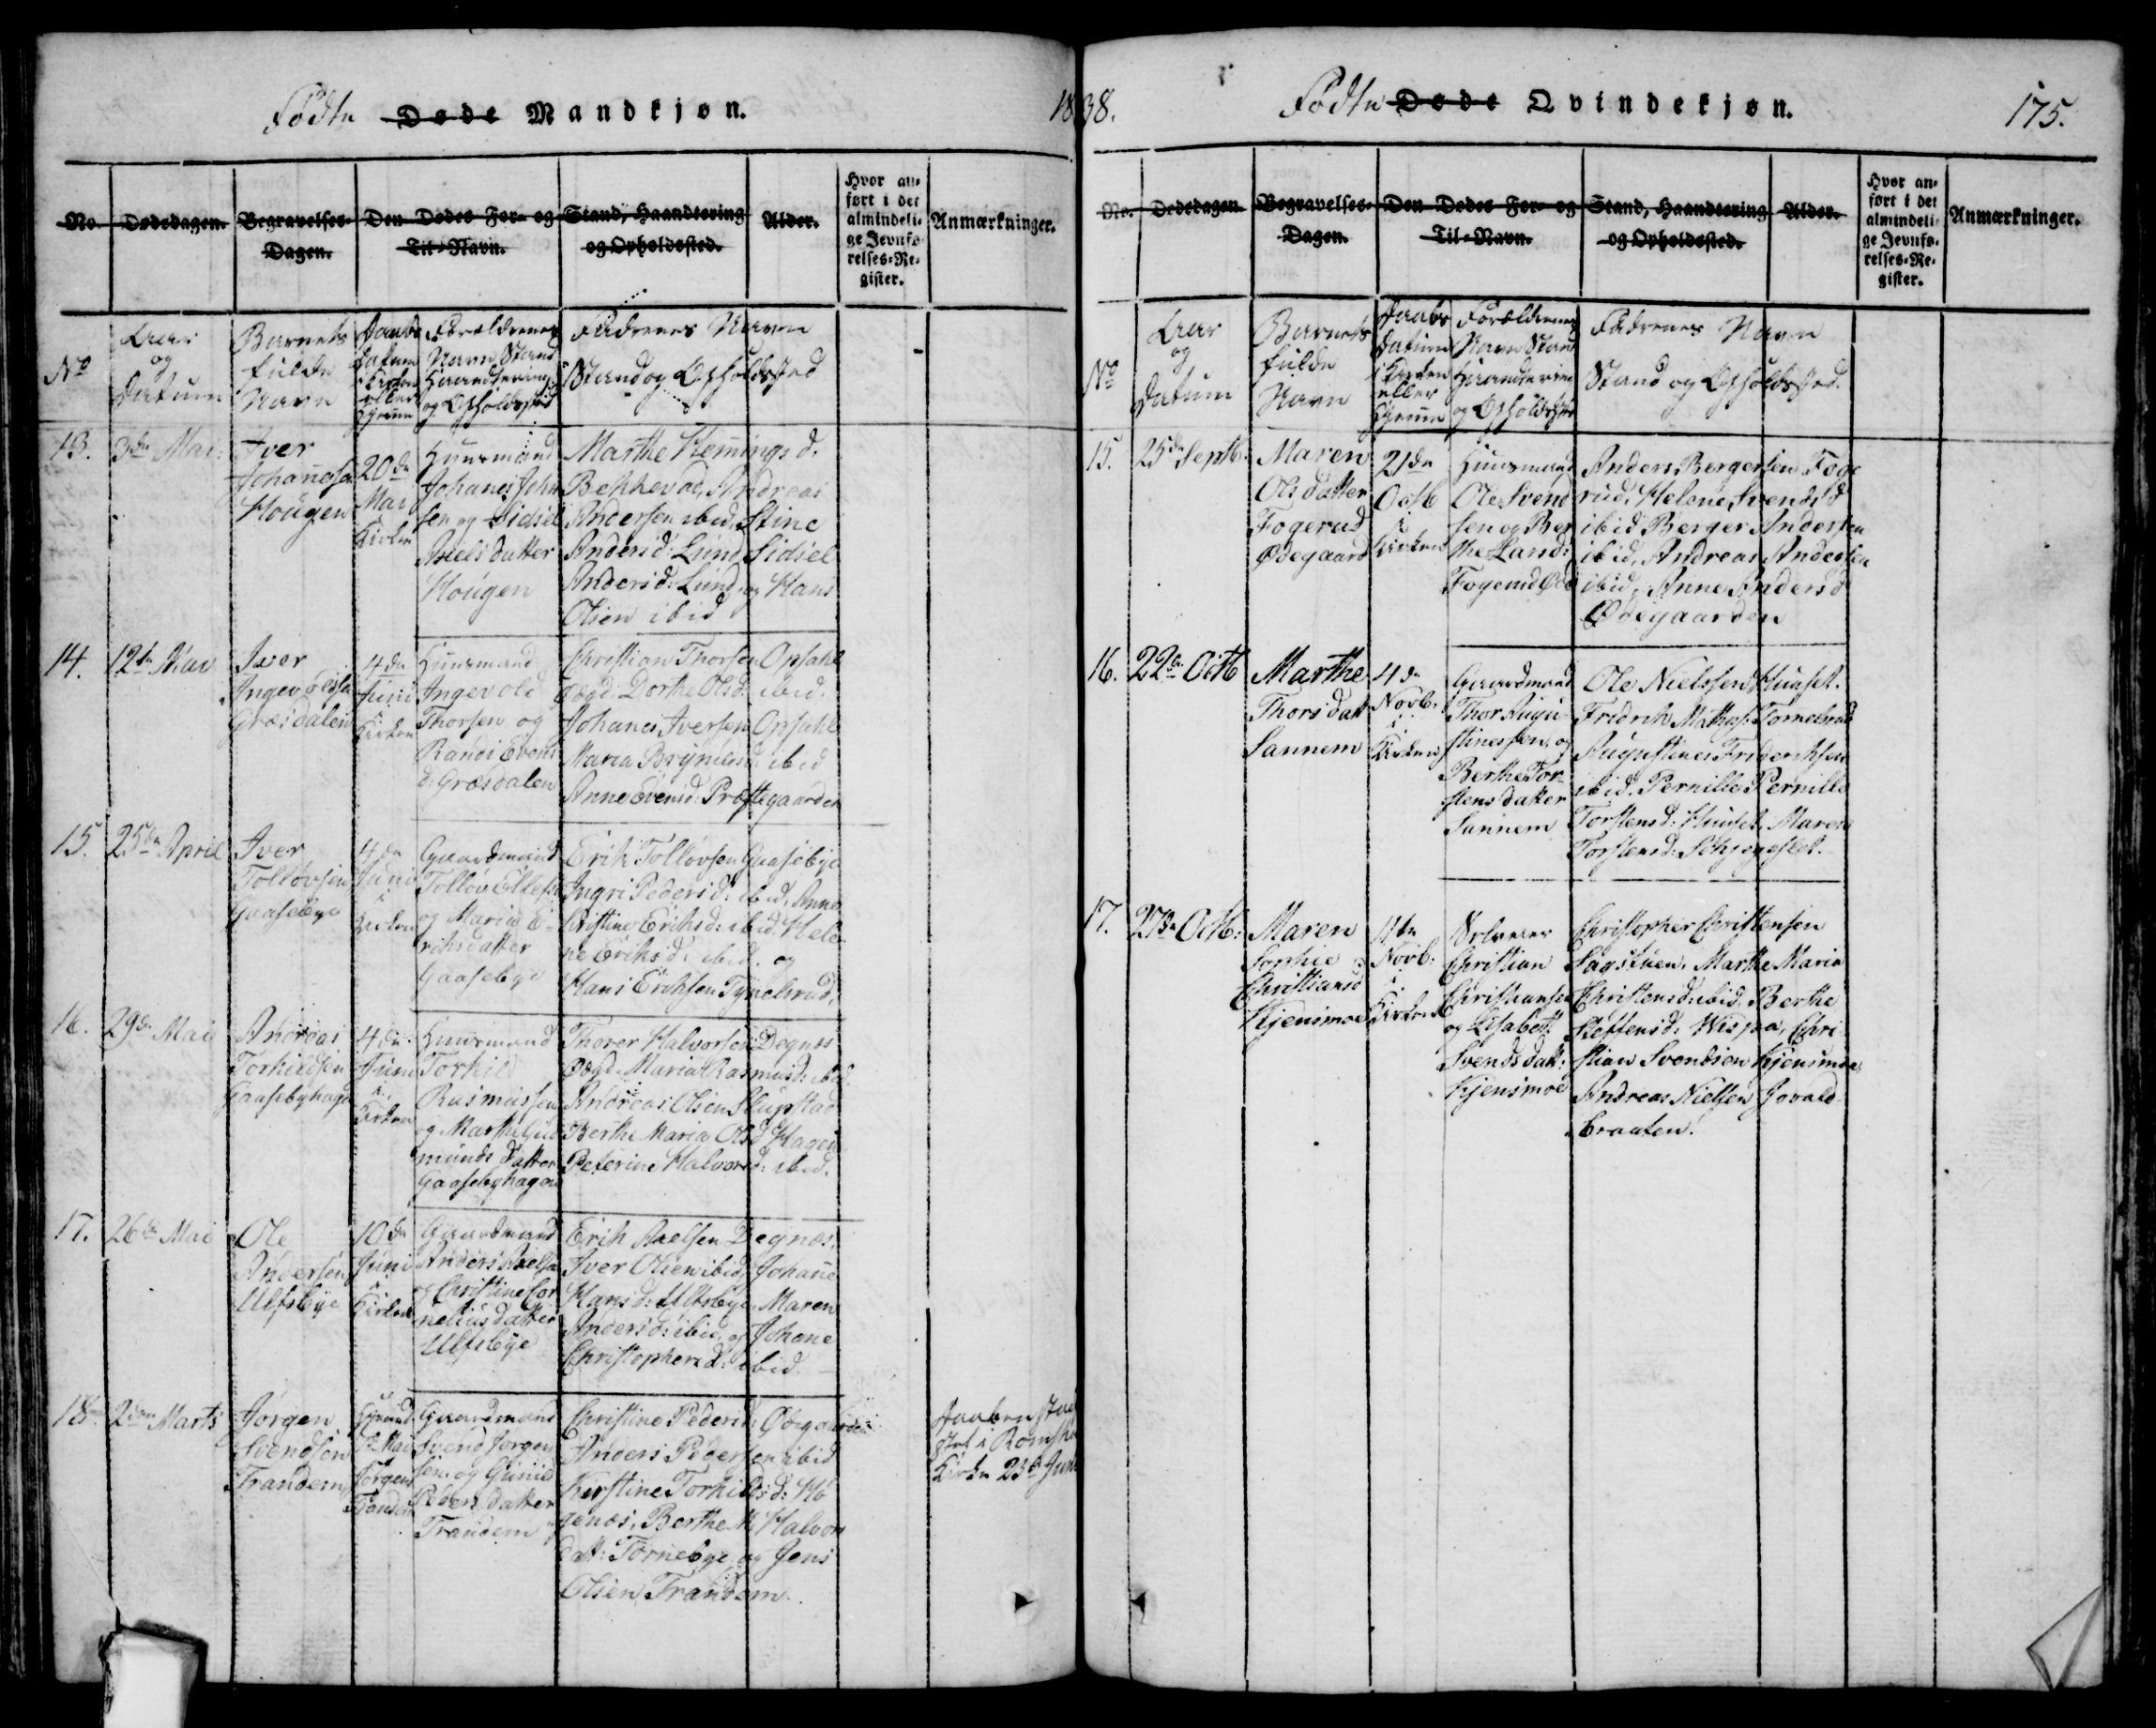 Fødte Døde Mandkjøn.
1838.
No. Dødsdagen. Begravelses-Dagen. Den Dødes For- og Til-Navn. Stand, Haandtering og Opholdssted. Alder. Hvor anført i det almindelige Jevnførelses-Register. Anmærkninger.
No
Aar
og
Datum
Barnets
fulde
Navn
Daabs
Datum
i Kirken
eller
Hjemme
Forældrenes
Navn, Stand
Haandtering
og Opholdssted
Faddernes Navn
Stand og Opholdssted
13.
3de Mai
Iver
Johannesen
Hougen
20de
Mai
Kirken
Huusmand
Johanes John
sen og Sidsel
Axels datter
Hougen
Marthe Flemings d.
Bekkevad, Andreas
Andersen ibid, Stine
Anders d: Lund, Sidsel
Anders d: Lund, og Hans
Olsen ibid
14.
12te Mai
Iver
Ingevoldsen
Græsdalen
4de
Juni
i
Kirken
Huusmand
Ingevold
Thorsen og
Randi Evens
d: Græsdalen
Christian Thorsen Opsahl
Ødgd: Dorthe Olsd: ibid.
Johanes Iversen Opsahl
Maria Brynilds d: ibid
Anne Evensd: Præstegaarden
15.
25de April
Iver
Tolløvsen
Gaasebye
4de
Juni
i
Kirken
Gaardmand
Tolløv Ellefsen
og Maria E-
riksdatter
Gaasebye
Erik Tolløvsen Gaasebye
Ingri Peders d: ibid, Anne
Christine Eriksd: ibid, Hele-
ne Eriksd: ibid. og
Hans Eriksen Tynelsrud.
16.
29de Mai
Andreas
Torkildsen
Gaasebyhagen
4de
Juni
i
Kirken
Huusmand
Torkild
Rasmussen
og Marthe Gud
munds datter
Gaasebyhagen
Thorer Halvorsen Degnæs
Ødgd. Maria Rasmusd: ibid.
Andreas Olsen Slupstad
Berthe Maria Olsd. Hagen
Peterine Halvorsd: ibid.
17.
26de Mai
Ole
Andersen
Ulfsbye
10de
Juni
i
Kirken
Gaardmand
Anders Axelsen
og Christine Cor
nelius datter
Ulfsbye
Erik Axelsen Degnæs,
Iver Olsen ibid, Johane
Hansd: Ulfsbye, Maren
Andersd: ibid, og Johane
Christophersd: ibid.
18.
2den Marts
Jørgen
Svendsen
Trandem
Gaardmand
Svend Jørgen
sen og Gunild
Peders datter
Trandem
Christine Pedersd: Ødegaarden
Anders Pedersen ibid
Kirstine Torkildsd: Hø
genæs, Berthe M. Halvors
datt: Tørnebye og Jens
Olsen Trandem.
Daaben stad
fæst i Rømskog
Kirke 23de Juni
Fødte Døde Qvindekjøn.
175.
No. Dødsdagen. Begravelses-Dagen. Den Dødes For- og Til-Navn. Stand, Haandtering og Opholdssted. Alder. Hvor anført i det almindelige Jevnførelses-Register. Anmærkninger.
No
Aar
og
Datum
Barnets
fulde
Navn
Daabs
Datum
i Kirken
eller
Hjemme
Forældrenes
Navn Stand
Haandtering
og Opholdssted
Faddernes Navn
Stand og Opholdssted.
15.
25de Septb.
Maren
Ols datter
Fogerud
Ødegaard
21de
Octb
i
Kirken
Huusmand
Ole Svend
sen og Ber
the Lars d:
Fogerud Øde
Anders Bergersen Foge
rud, Helene Svendsd
ibid Berger Andersen
ibid, Andreas Andersen
ibid, Anne Andersd
Ødegaarden
16.
22de Octb
Marthe
Thors datt
Sannem
4de
Novb.
i
Kirken
Gaardmand
Thor Augu-
stinessen, og
Berthe Tor-
stens datter
Sannem
Ole Nielssen Huuset.
Fridrik Mathys. Tornelsrud
Augustines Friderichsen
ibid. Pernille Pernille
Torstensd: Huuset, Maren
Torstensd: Skjegeslet.
17.
27de Octb:
Maren
Sophie
Christiansd
Kjensmoe
11te
Novb:
i
Kirken
Christian
Christiansen
og Lisabeth
Svends datt:
Kjensmoe
Christopher Christensen
Sagstuen, Marthe Maria
Christensd: ibid, Berthe
Steffensd: Wispa, Chri
stian Svendsen Kjensmoe
Andreas Nielsen Jovald
braaten.